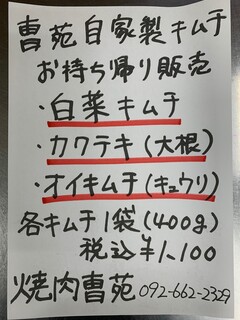 曹苑自家製キムチ
お持ち帰り販売
・白菜キムチ
・カクテキ(大根)
・オイキムチ(キュウリ)
各キムチ1袋(400g)
税込¥1,100
焼肉曹苑 092-662-2329